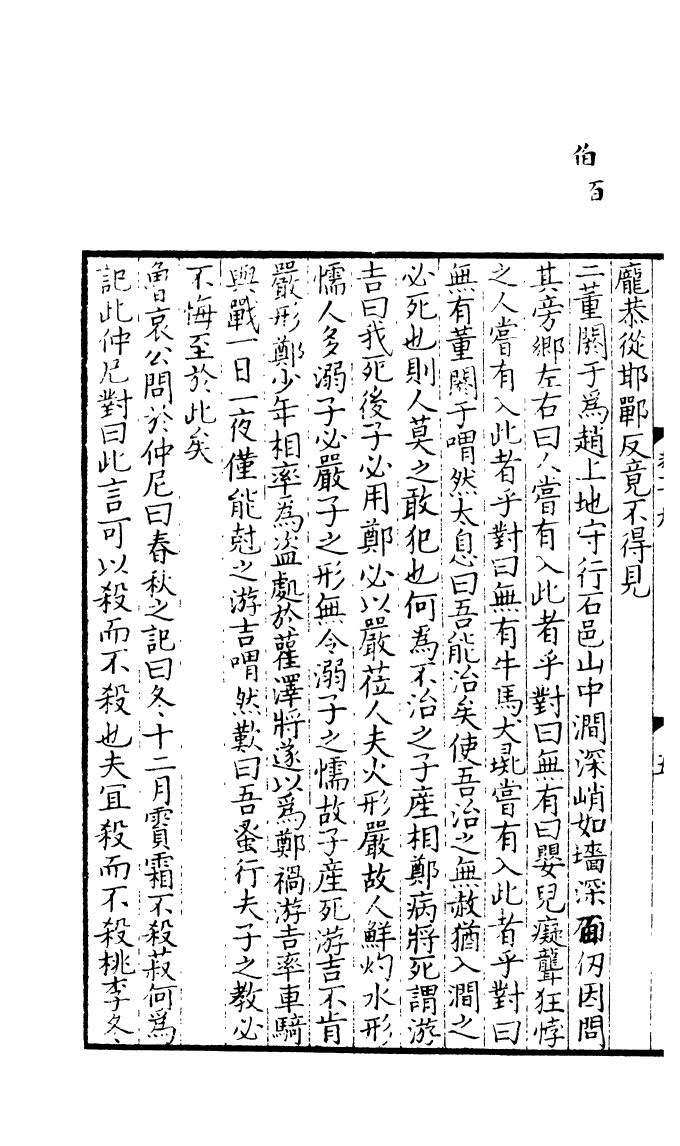 伯百
龐恭從邯鄲反竟不得見
二董閼于為趙上地守行石邑山中澗深峭如墻深仞因問
其旁鄉左右曰人嘗有入此者乎對曰無有曰嬰兒癡聾狂悖
之人嘗有入此者乎對曰無有牛馬犬彘嘗有入此者乎對曰
無有董閼于喟然太息曰吾能治矣使吾治之無赦猶入澗之
必死也則人莫之敢犯也何為不治之子產相鄭病將死謂游
吉曰我死後子必用鄭必以嚴莅人夫火形嚴故人鮮灼水形
懦人多溺子必嚴子之形無令溺子之懦故子產死游吉不肯
嚴形鄭少年相率為盜處於雚澤將遂以為鄭禍游吉率車騎
與戰一日一夜僅能尅之游吉喟然歎曰吾蚤行夫子之教必
不悔至於此矣
魯哀公問於仲尼曰春秋之記曰冬十二月霣霜不殺菽何為
記此仲尼對曰此言可以殺而不殺也夫宜殺而不殺桃李冬